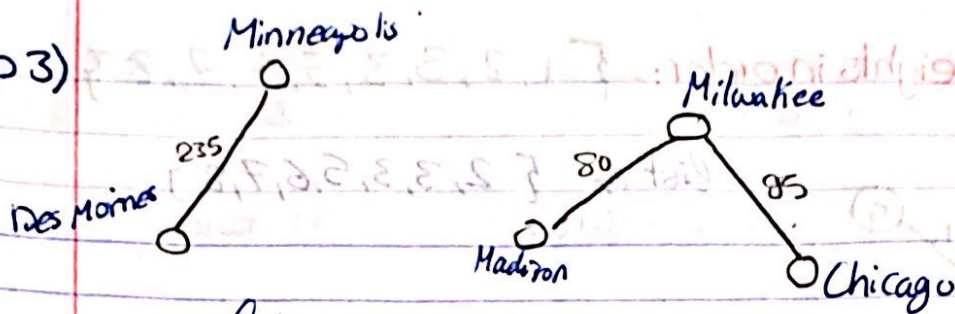 3)
Minneapolis
235
Des Moines
Milwaukee
80
95
Madison
Chicago